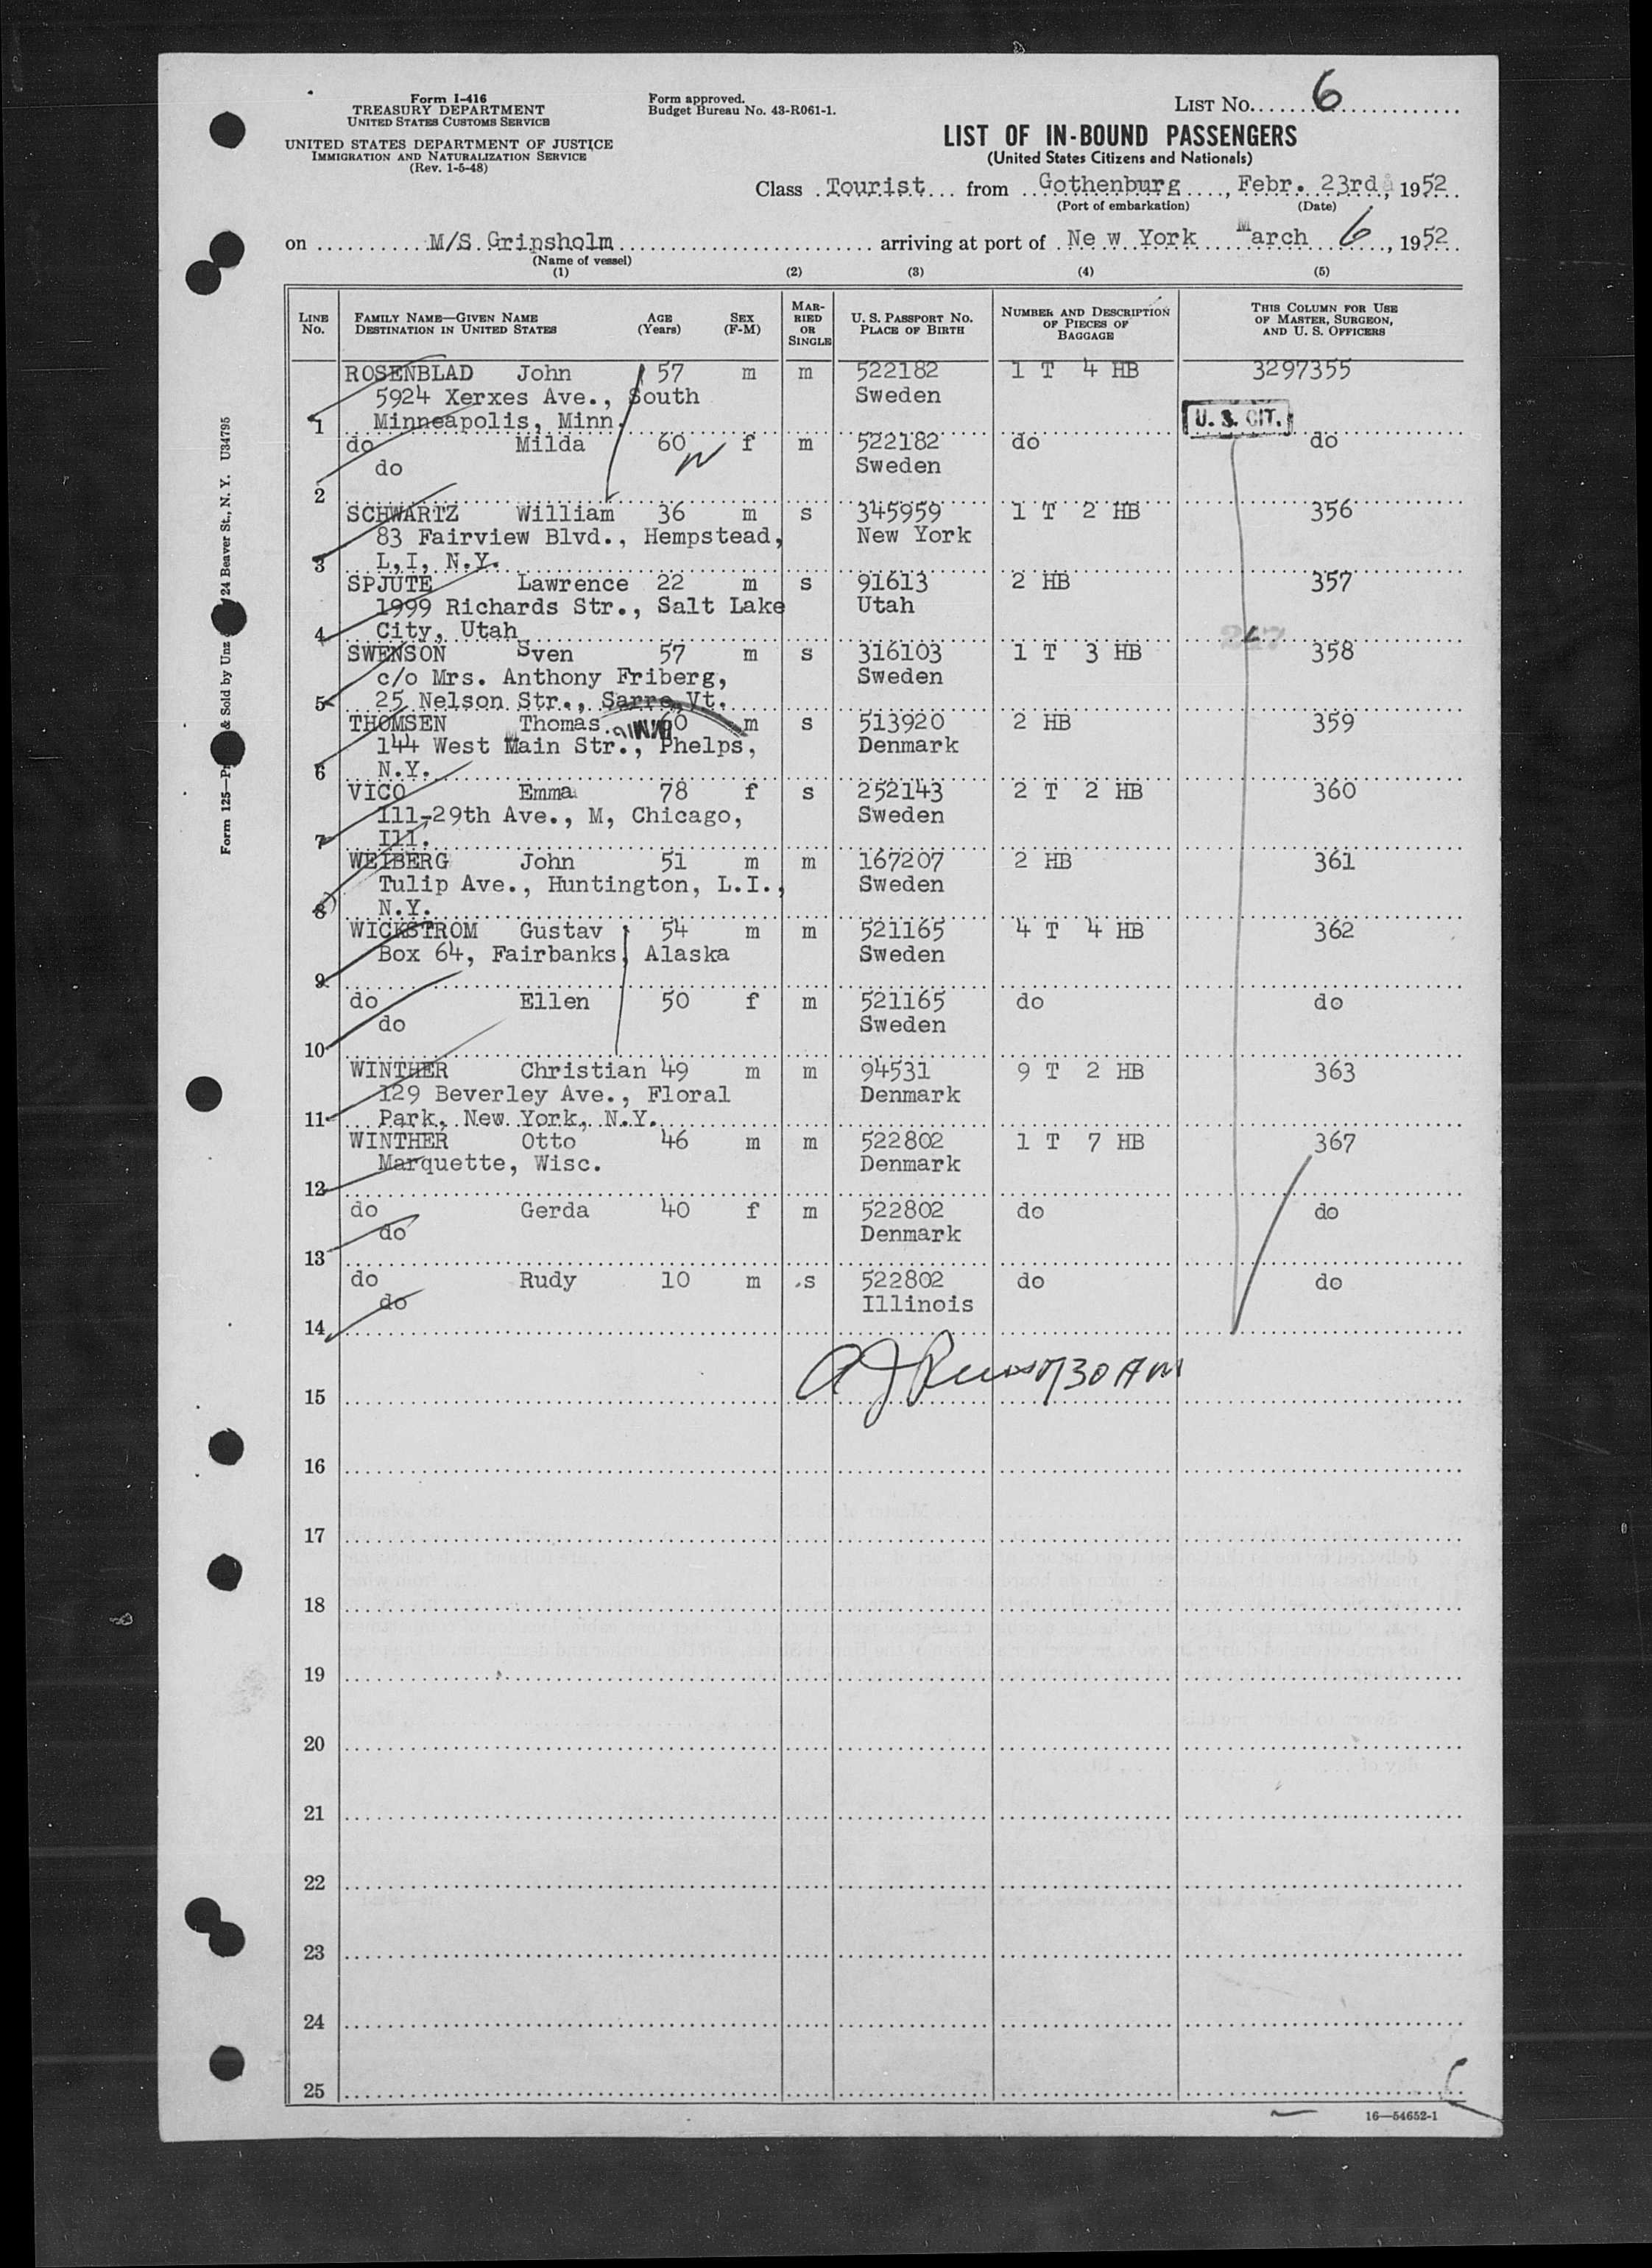 Form I-416
TREASURY DEPARTMENT
UNITED STATES CUSTOMS SERVICE
UNITED STATES DEPARTMENT OF JUSTICE
IMMIGRATION AND NATURALIZATION SERVICE
(Rev. 1-5-48)
Form approved.
Budget Bureau No. 43-R061-1.
LIST NO. 6
LIST OF IN-BOUND PASSENGERS
(United States Citizens and Nationals)
Class Tourist from Gothenburg, Febr. 23rd, 1952
(Port of embarkation) (Date)
on M/S Gripsholm arriving at port of New York March 6, 1952
(Name of vessel)
(1) (2) (3) (4) (5)
LINE NO. FAMILY NAME—GIVEN NAME DESTINATION IN UNITED STATES AGE (Years) SEX (F-M) MARRIED OR SINGLE U. S. PASSPORT NO. PLACE OF BIRTH NUMBER AND DESCRIPTION OF PIECES OF BAGGAGE THIS COLUMN FOR USE OF MASTER, SURGEON, AND U. S. OFFICERS
ROSENBLAD John 57 m m 522182 1 T 4 HB 3297355
5924 Xerxes Ave., South Sweden
1 Minneapolis, Minn. U. S. CIT.
do Milda 60 f m 522182 do do
do Sweden
2
SCHWARTZ William 36 m s 345959 1 T 2 HB 356
83 Fairview Blvd., Hempstead, New York
3 L,I, N.Y.
SPJUTE Lawrence 22 m s 91613 2 HB 357
1999 Richards Str., Salt Lake Utah
4 City, Utah
SWENSON Sven 57 m s 316103 1 T 3 HB 358
c/o Mrs. Anthony Friberg, Sweden
5 25 Nelson Str., Sarre Vt.
THOMSEN Thomas 60 m s 513920 2 HB 359
144 West Main Str., Phelps, Denmark
6 N.Y.
VICO Emma 78 f s 252143 2 T 2 HB 360
111-29th Ave., M, Chicago, Sweden
7 Ill.
WEIBERG John 51 m m 167207 2 HB 361
Tulip Ave., Huntington, L.I., Sweden
8 N.Y.
WICKSTROM Gustav 54 m m 521165 4 T 4 HB 362
Box 64, Fairbanks, Alaska Sweden
9
do Ellen 50 f m 521165 do do
do Sweden
10
WINTHER Christian 49 m m 94531 9 T 2 HB 363
129 Beverley Ave., Floral Denmark
11 Park, New York, N.Y.
WINTHER Otto 46 m m 522802 1 T 7 HB 367
Marquette, Wisc. Denmark
12
do Gerda 40 f m 522802 do do
do Denmark
13
do Rudy 10 m s 522802 do do
do Illinois
14
730 AM
15
16
17
18
19
20
21
22
23
24
25
16—54652-1
& Sold by Unz 24 Beaver St., N. Y. U34795
Form 125—